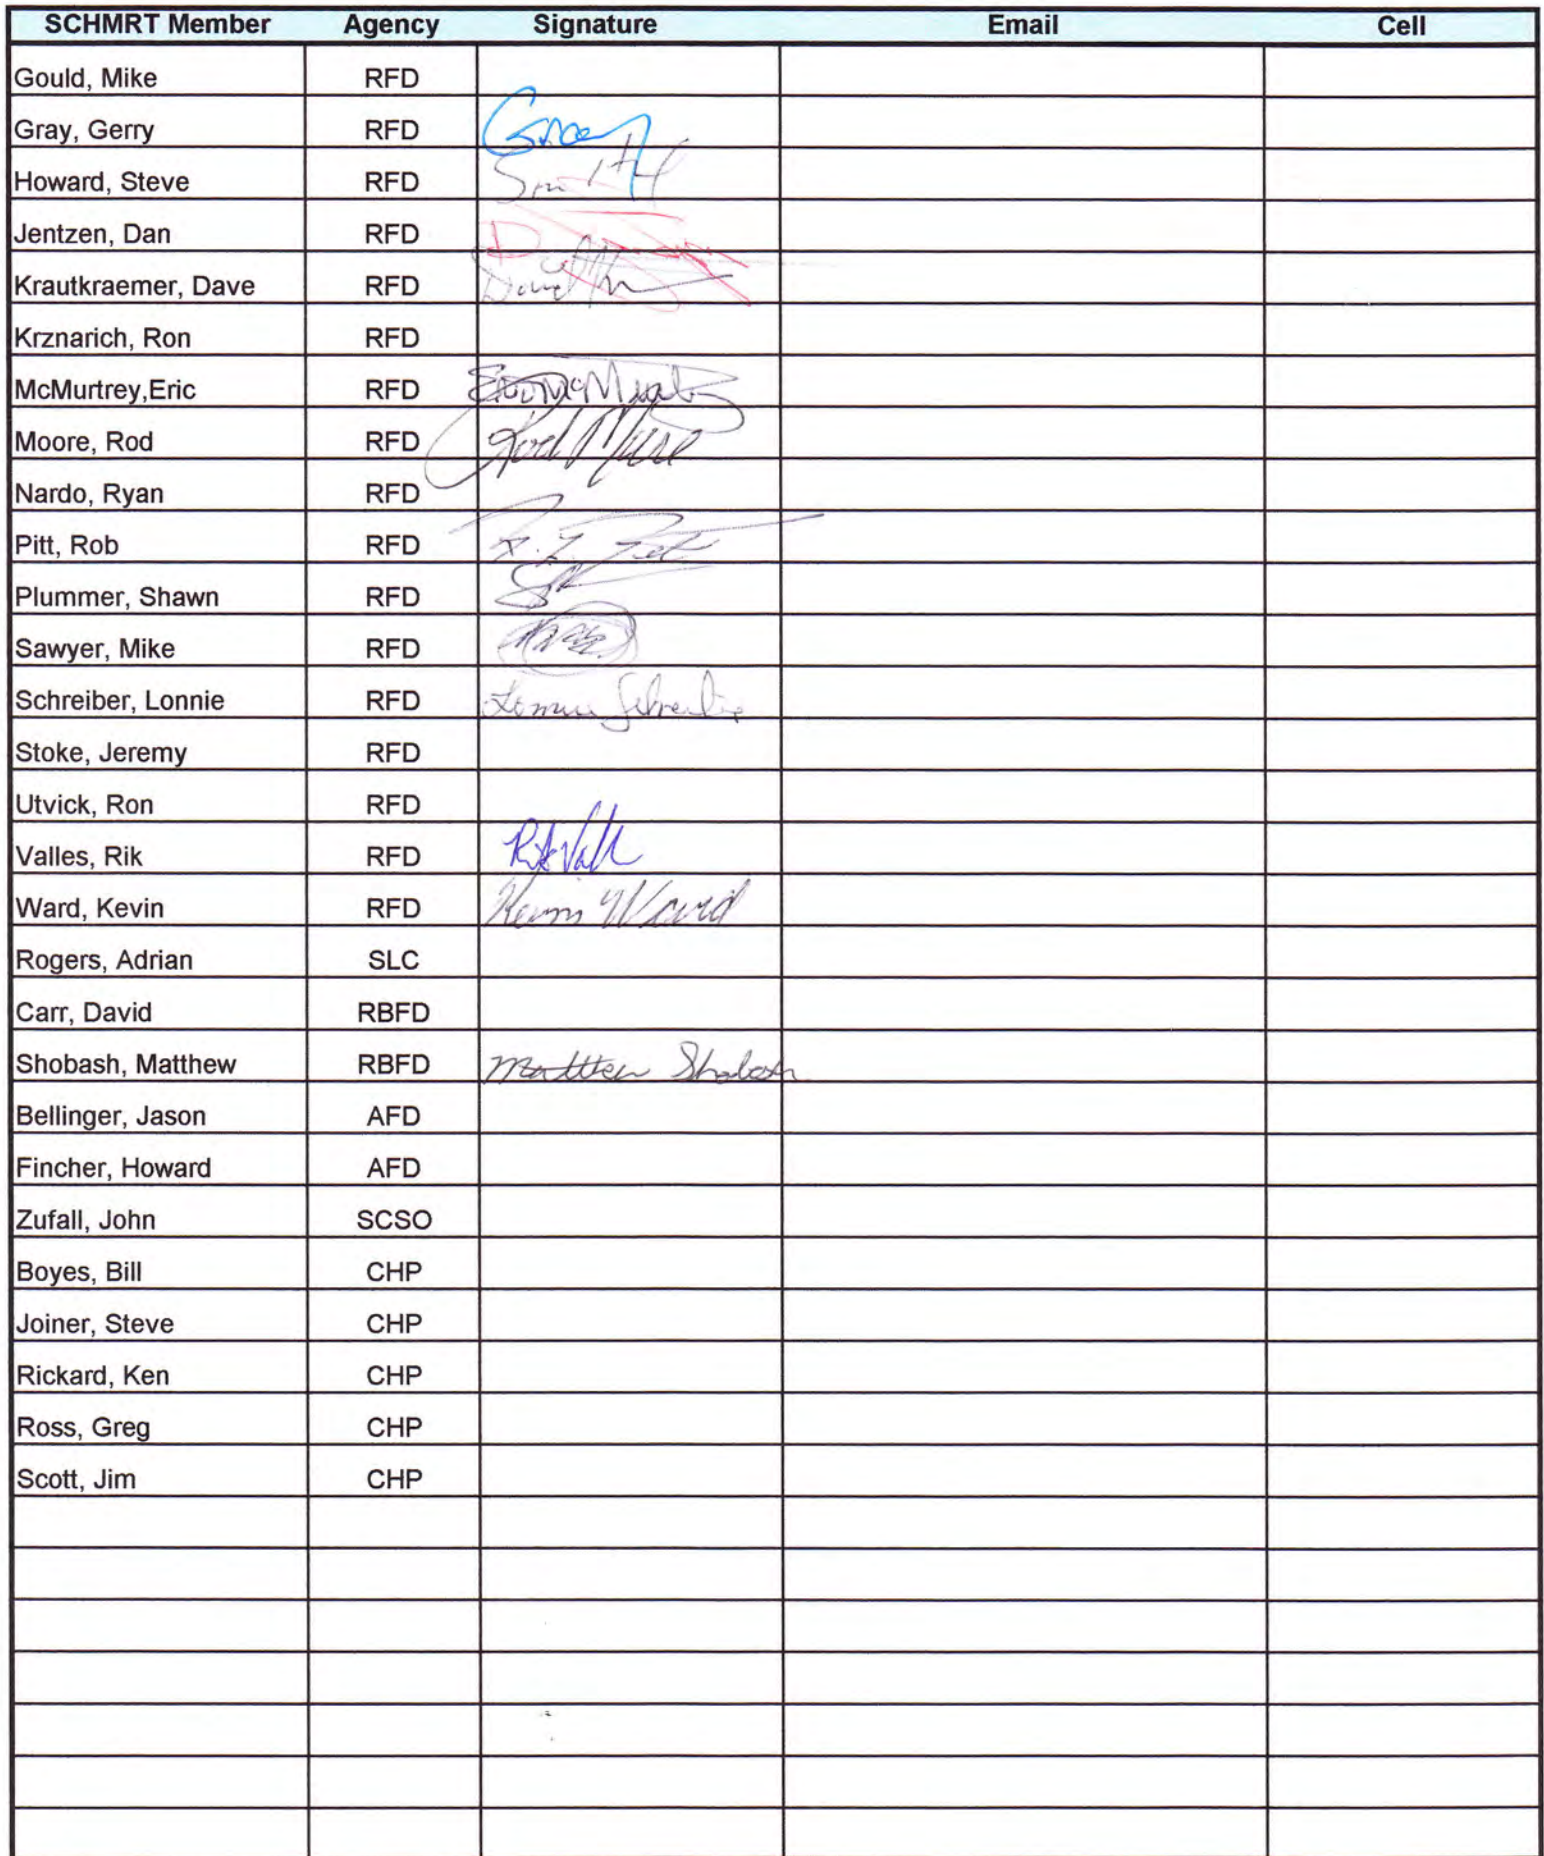 SCHMRT Member Agency Signature Email Cell
Gould, Mike RFD
Gray, Gerry RFD
Howard, Steve RFD
Jentzen, Dan RFD
Krautkraemer, Dave RFD
Krznarich, Ron RFD
McMurtrey,Eric RFD
Moore, Rod RFD Rod Moore
Nardo, Ryan RFD
Pitt, Rob RFD
Plummer, Shawn RFD
Sawyer, Mike RFD
Schreiber, Lonnie RFD Lonnie Schreiber
Stoke, Jeremy RFD
Utvick, Ron RFD
Valles, Rik RFD
Ward, Kevin RFD Kevin Ward
Rogers, Adrian SLC
Carr, David RBFD
Shobash, Matthew RBFD Matthew Shobash
Bellinger, Jason AFD
Fincher, Howard AFD
Zufall, John SCSO
Boyes, Bill CHP
Joiner, Steve CHP
Rickard, Ken CHP
Ross, Greg CHP
Scott, Jim CHP